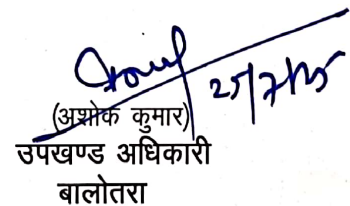 25/7/25
(अशोक कुमार)
उपखण्ड अधिकारी
बालोतरा